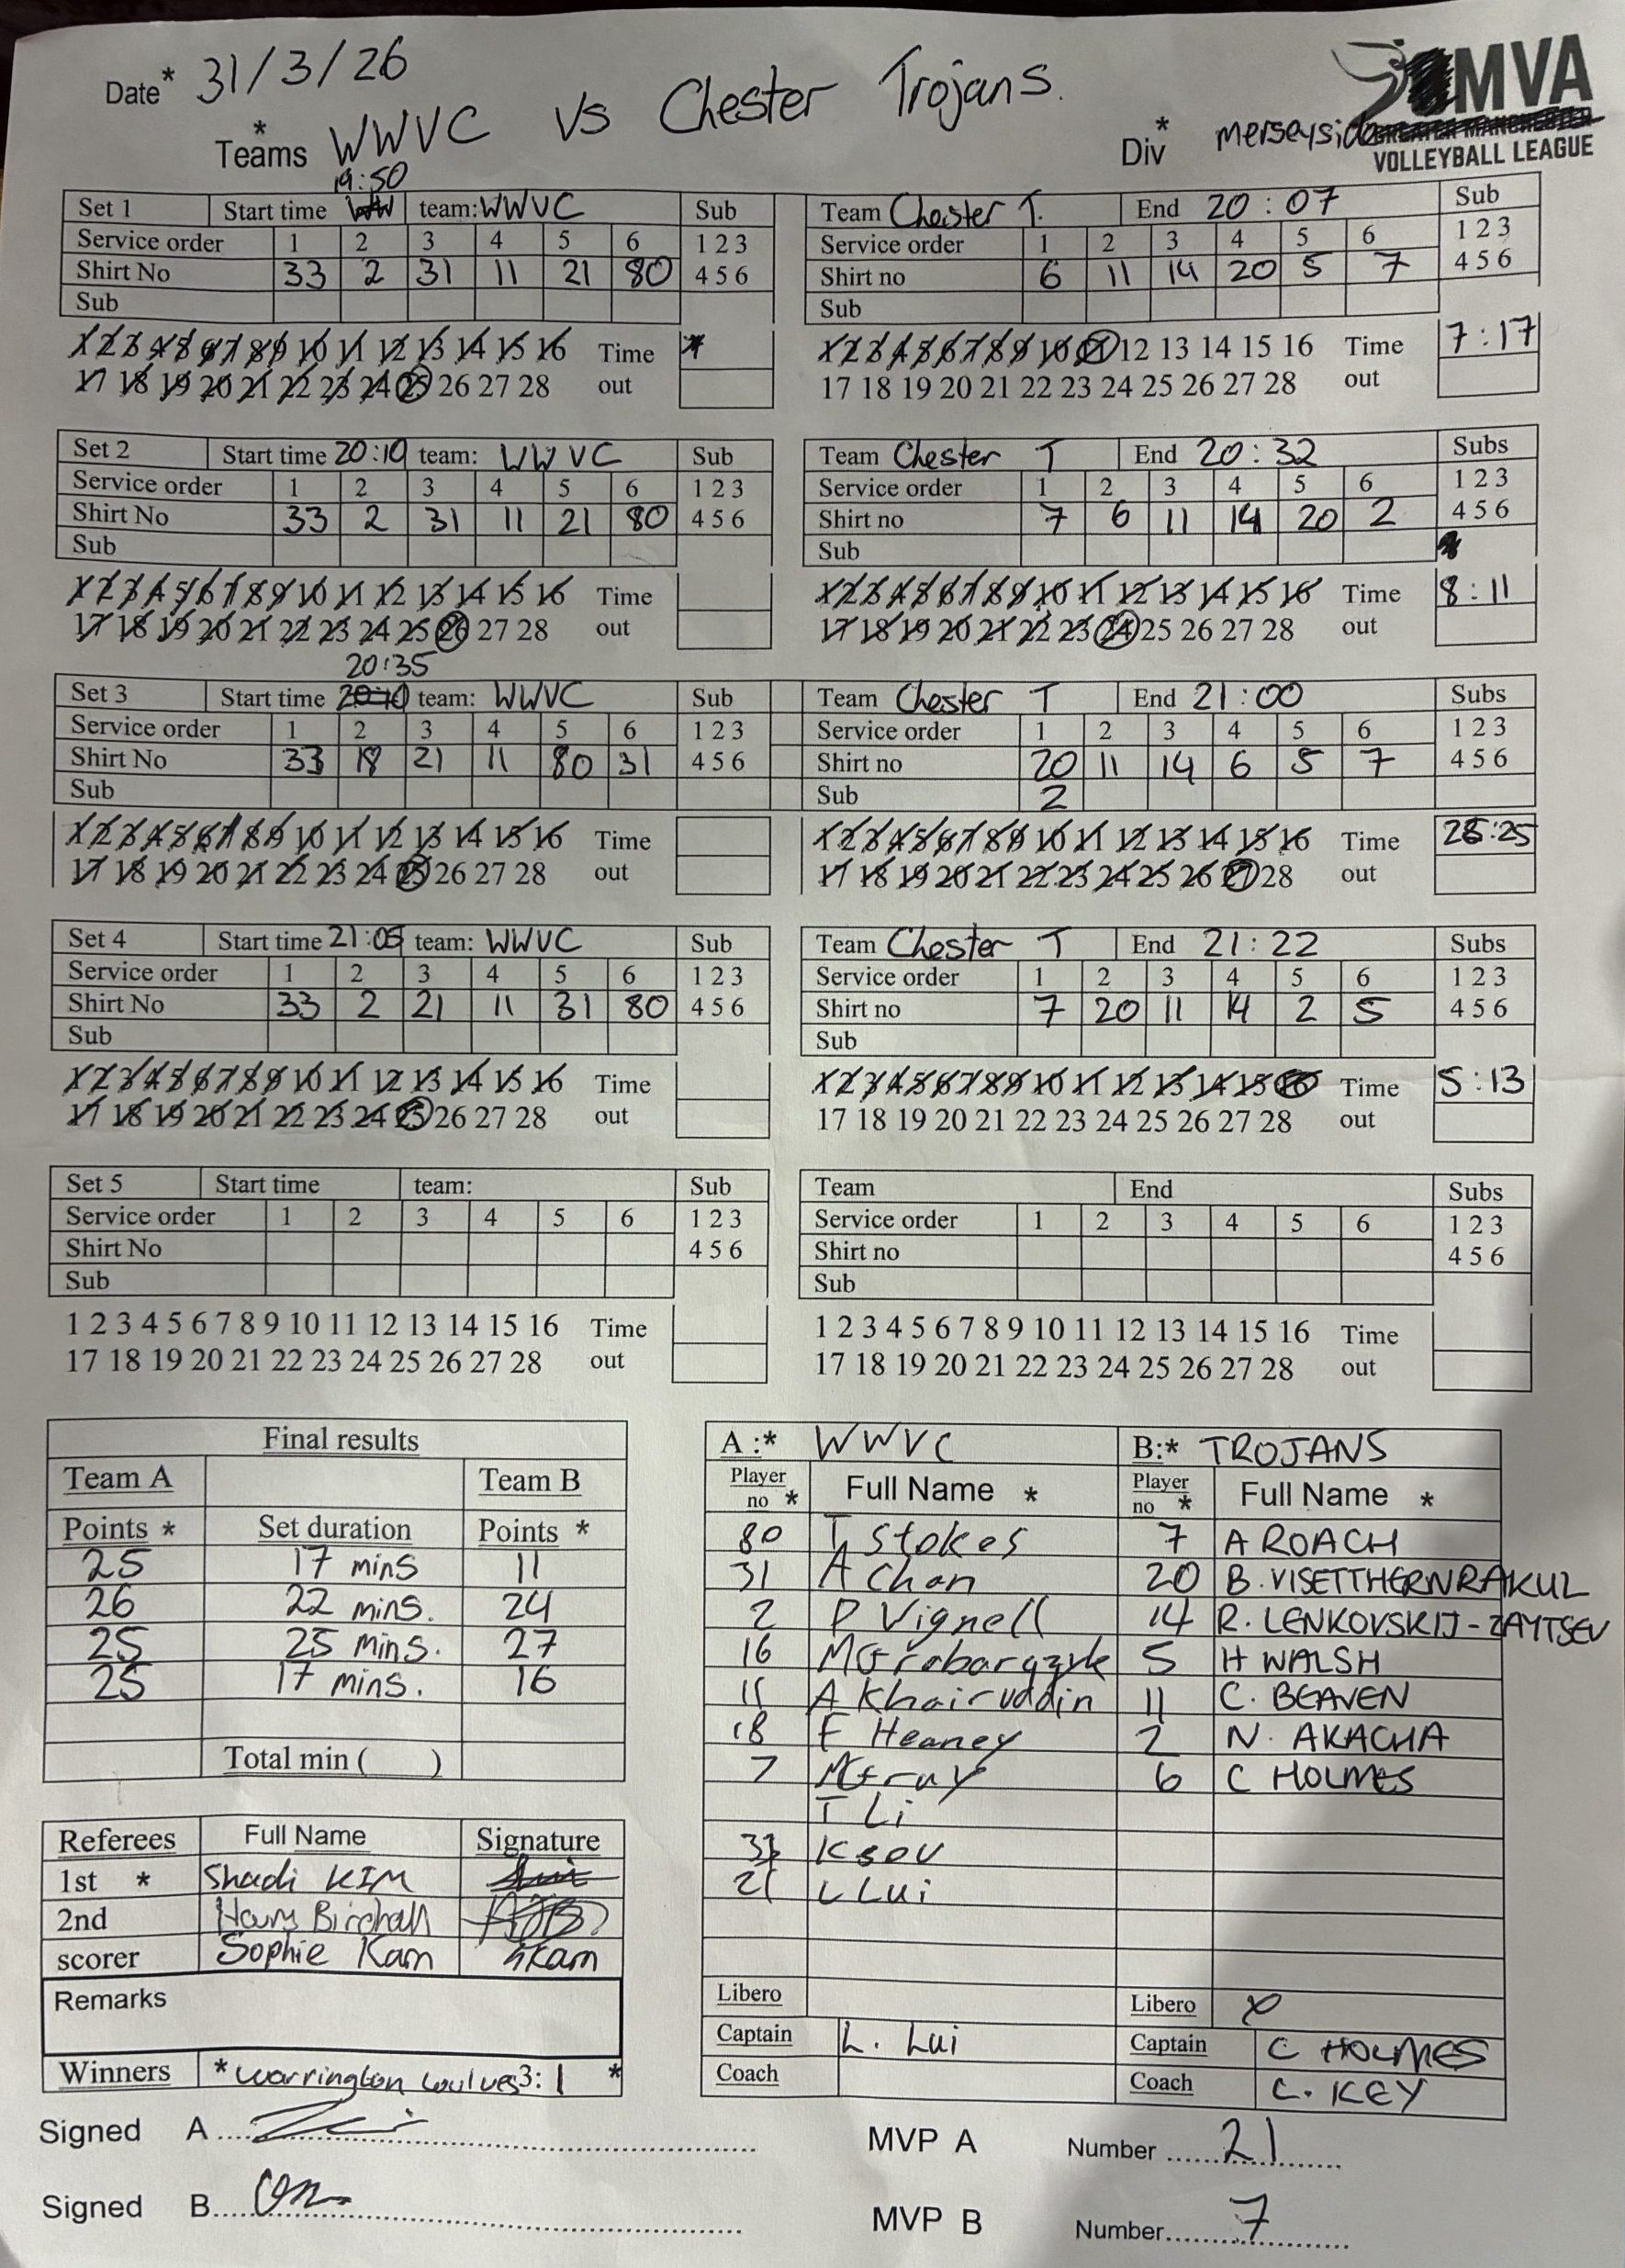 Date* 31/3/26
Teams* WWVC vs Chester Trojans.
Div* Merseyside
MVA
GREATER MANCHESTER
VOLLEYBALL LEAGUE
19:50
Set 1 Start time team: WWVC Sub Team Chester T. End 20:07 Sub
Service order 1 2 3 4 5 6 1 2 3 Service order 1 2 3 4 5 6 1 2 3
Shirt No 33 2 31 11 21 80 4 5 6 Shirt no 6 11 14 20 5 7 4 5 6
Sub Sub
1 2 3 4 5 6 7 8 9 10 11 12 13 14 15 16 Time 1 2 3 4 5 6 7 8 9 10 11 12 13 14 15 16 Time 7:17
17 18 19 20 21 22 23 24 25 26 27 28 out 17 18 19 20 21 22 23 24 25 26 27 28 out
Set 2 Start time 20:10 team: WWVC Sub Team Chester T End 20:32 Subs
Service order 1 2 3 4 5 6 1 2 3 Service order 1 2 3 4 5 6 1 2 3
Shirt No 33 2 31 11 21 80 4 5 6 Shirt no 7 6 11 14 20 2 4 5 6
Sub Sub
1 2 3 4 5 6 7 8 9 10 11 12 13 14 15 16 Time 1 2 3 4 5 6 7 8 9 10 11 12 13 14 15 16 Time 8:11
17 18 19 20 21 22 23 24 25 26 27 28 out 17 18 19 20 21 22 23 24 25 26 27 28 out
20:35
Set 3 Start time 20:10 team: WWVC Sub Team Chester T End 21:00 Subs
Service order 1 2 3 4 5 6 1 2 3 Service order 1 2 3 4 5 6 1 2 3
Shirt No 33 18 21 11 80 31 4 5 6 Shirt no 20 11 14 6 5 7 4 5 6
Sub Sub 2
1 2 3 4 5 6 7 8 9 10 11 12 13 14 15 16 Time 1 2 3 4 5 6 7 8 9 10 11 12 13 14 15 16 Time 25:25
17 18 19 20 21 22 23 24 25 26 27 28 out 17 18 19 20 21 22 23 24 25 26 27 28 out
Set 4 Start time 21:05 team: WWVC Sub Team Chester T End 21:22 Subs
Service order 1 2 3 4 5 6 1 2 3 Service order 1 2 3 4 5 6 1 2 3
Shirt No 33 2 21 11 31 80 4 5 6 Shirt no 7 20 11 14 2 5 4 5 6
Sub Sub
1 2 3 4 5 6 7 8 9 10 11 12 13 14 15 16 Time 1 2 3 4 5 6 7 8 9 10 11 12 13 14 15 16 Time 5:13
17 18 19 20 21 22 23 24 25 26 27 28 out 17 18 19 20 21 22 23 24 25 26 27 28 out
Set 5 Start time team: Sub Team End Subs
Service order 1 2 3 4 5 6 1 2 3 Service order 1 2 3 4 5 6 1 2 3
Shirt No 4 5 6 Shirt no 4 5 6
Sub Sub
1 2 3 4 5 6 7 8 9 10 11 12 13 14 15 16 Time 1 2 3 4 5 6 7 8 9 10 11 12 13 14 15 16 Time
17 18 19 20 21 22 23 24 25 26 27 28 out 17 18 19 20 21 22 23 24 25 26 27 28 out
Final results
Team A Team B
Points * Set duration Points *
25 17 mins 11
26 22 mins. 24
25 25 mins. 27
25 17 mins. 16
Total min ( )
Referees Full Name Signature
1st * Shadi KIM
2nd Harry Birchall
scorer Sophie Kam SKam
Remarks
Winners * Warrington Wolves 3:1 *
A:* WWVC B:* TROJANS
Player no * Full Name * Player no * Full Name *
80 T Stokes 7 A ROACH
31 A Chan 20 B. VISETTHERNRAKUL
2 P Vignell 14 R. LENKOVSKIJ-ZAYTSEV
16 5 H WALSH
11 A Khairuddin 11 C. BEAVEN
18 F Heaney 2 N. AKACHA
7 6 C HOLMES
T Li
33 K Sou
21 L Lui
Libero Libero X
Captain L. Lui Captain C HOLMES
Coach Coach C. KEY
Signed A MVP A Number 21
Signed B MVP B Number 7